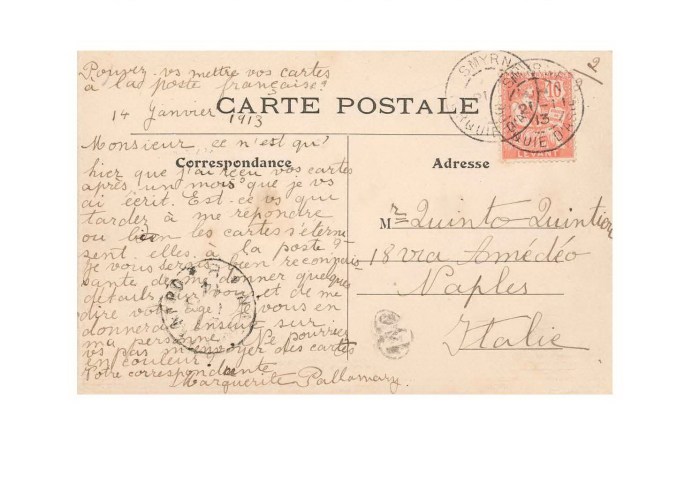 Pouvez-vs mettre vos cartes
à la poste française?
14 Janvier 1913
CARTE POSTALE
Correspondance
Monsieur, ce n'est qu'
hier que j'ai reçu vos cartes
après un mois que je vs
ai écrit. Est-ce vs que
tardez à me répondre
ou bien les cartes s'éterni
sent-elles à la poste?
Je vous serais bien reconnais-
sante de me donner quelques
détails de vous et de me
dire votre âge? Je vous en
donnerai ensuite sur
ma personne. Ne pourriez
vs pas m'envoyer des cartes
en couleur?
Votre correspondante
Marguerite Pallamary
Adresse
Mr Quinto Quintieri
18 via Amédéo
Naples
Italie
SMYRNE
TURQUIE D'ASIE
21
13
10
LEVANT
2